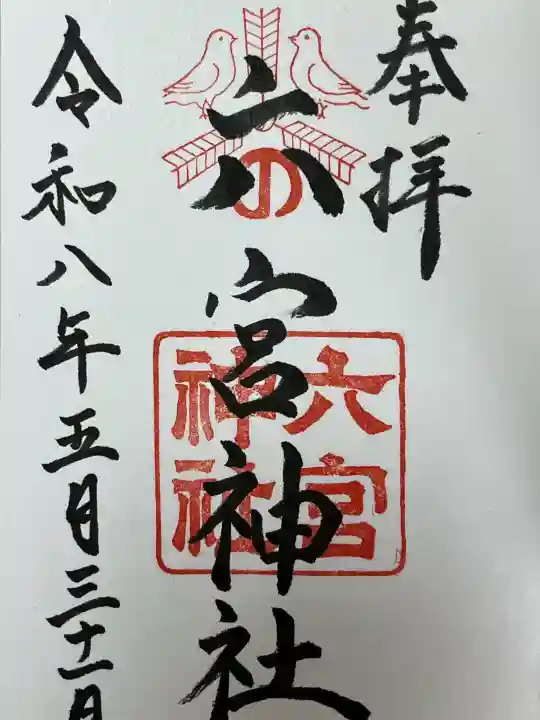 奉拝
六宮神社
六宮
神社
令和八年五月三十一日